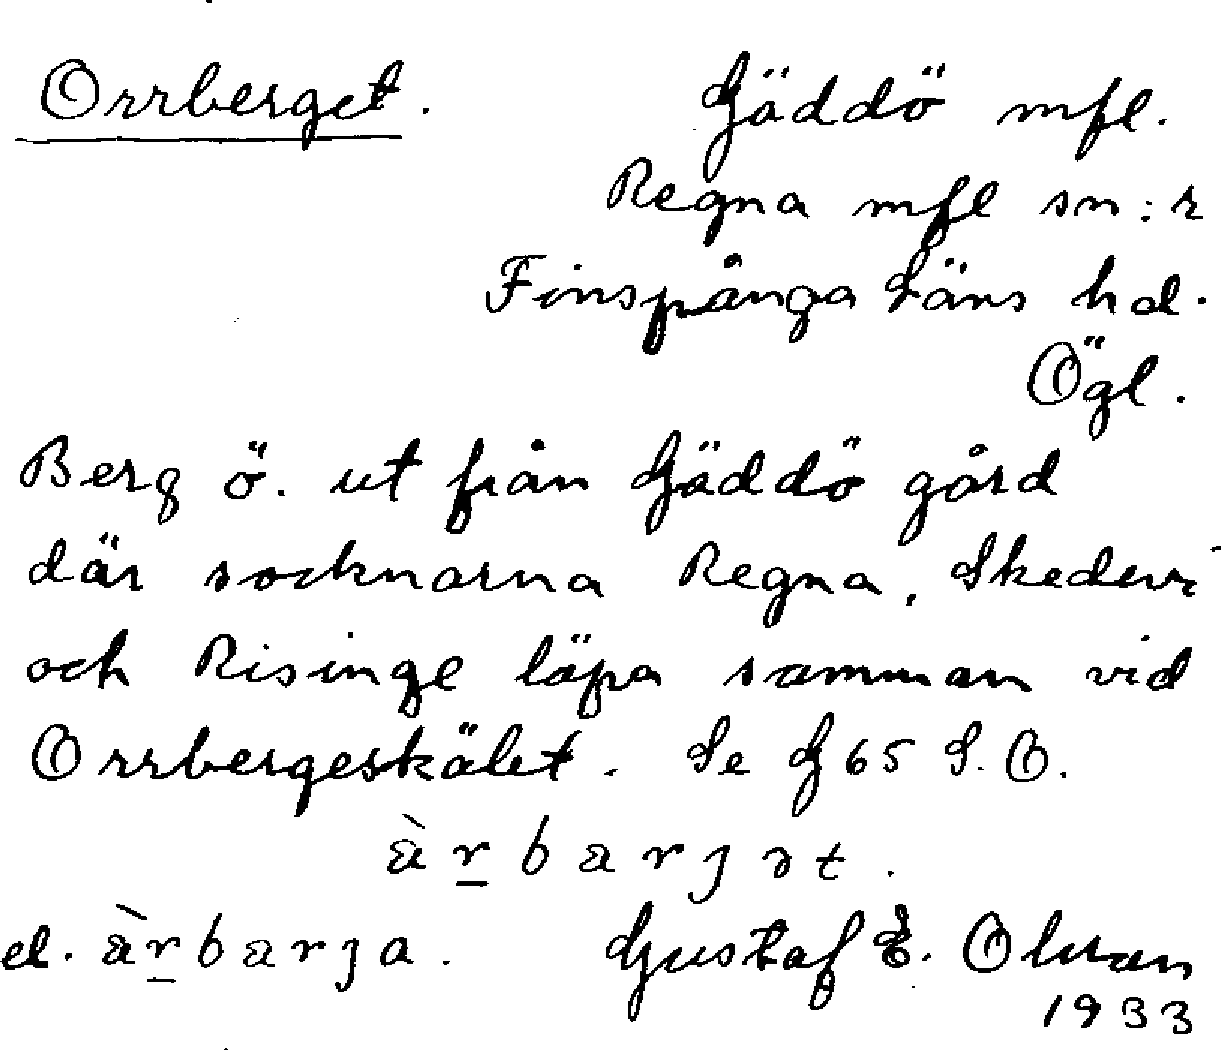 Orrberget. Gäddö mfl.
Regna mfl sn:r
Finspånga Läns hd.
Ögl.
Berg ö. ut från Gäddö gård
där socknarna Regna, Skedevi
och Risinge löpa samman vid
Orrbergeskälet. Se G65 S.O.
ὰr̲barȷət.
el. ὰr̲barȷa. Gustaf E. Olsson
1933